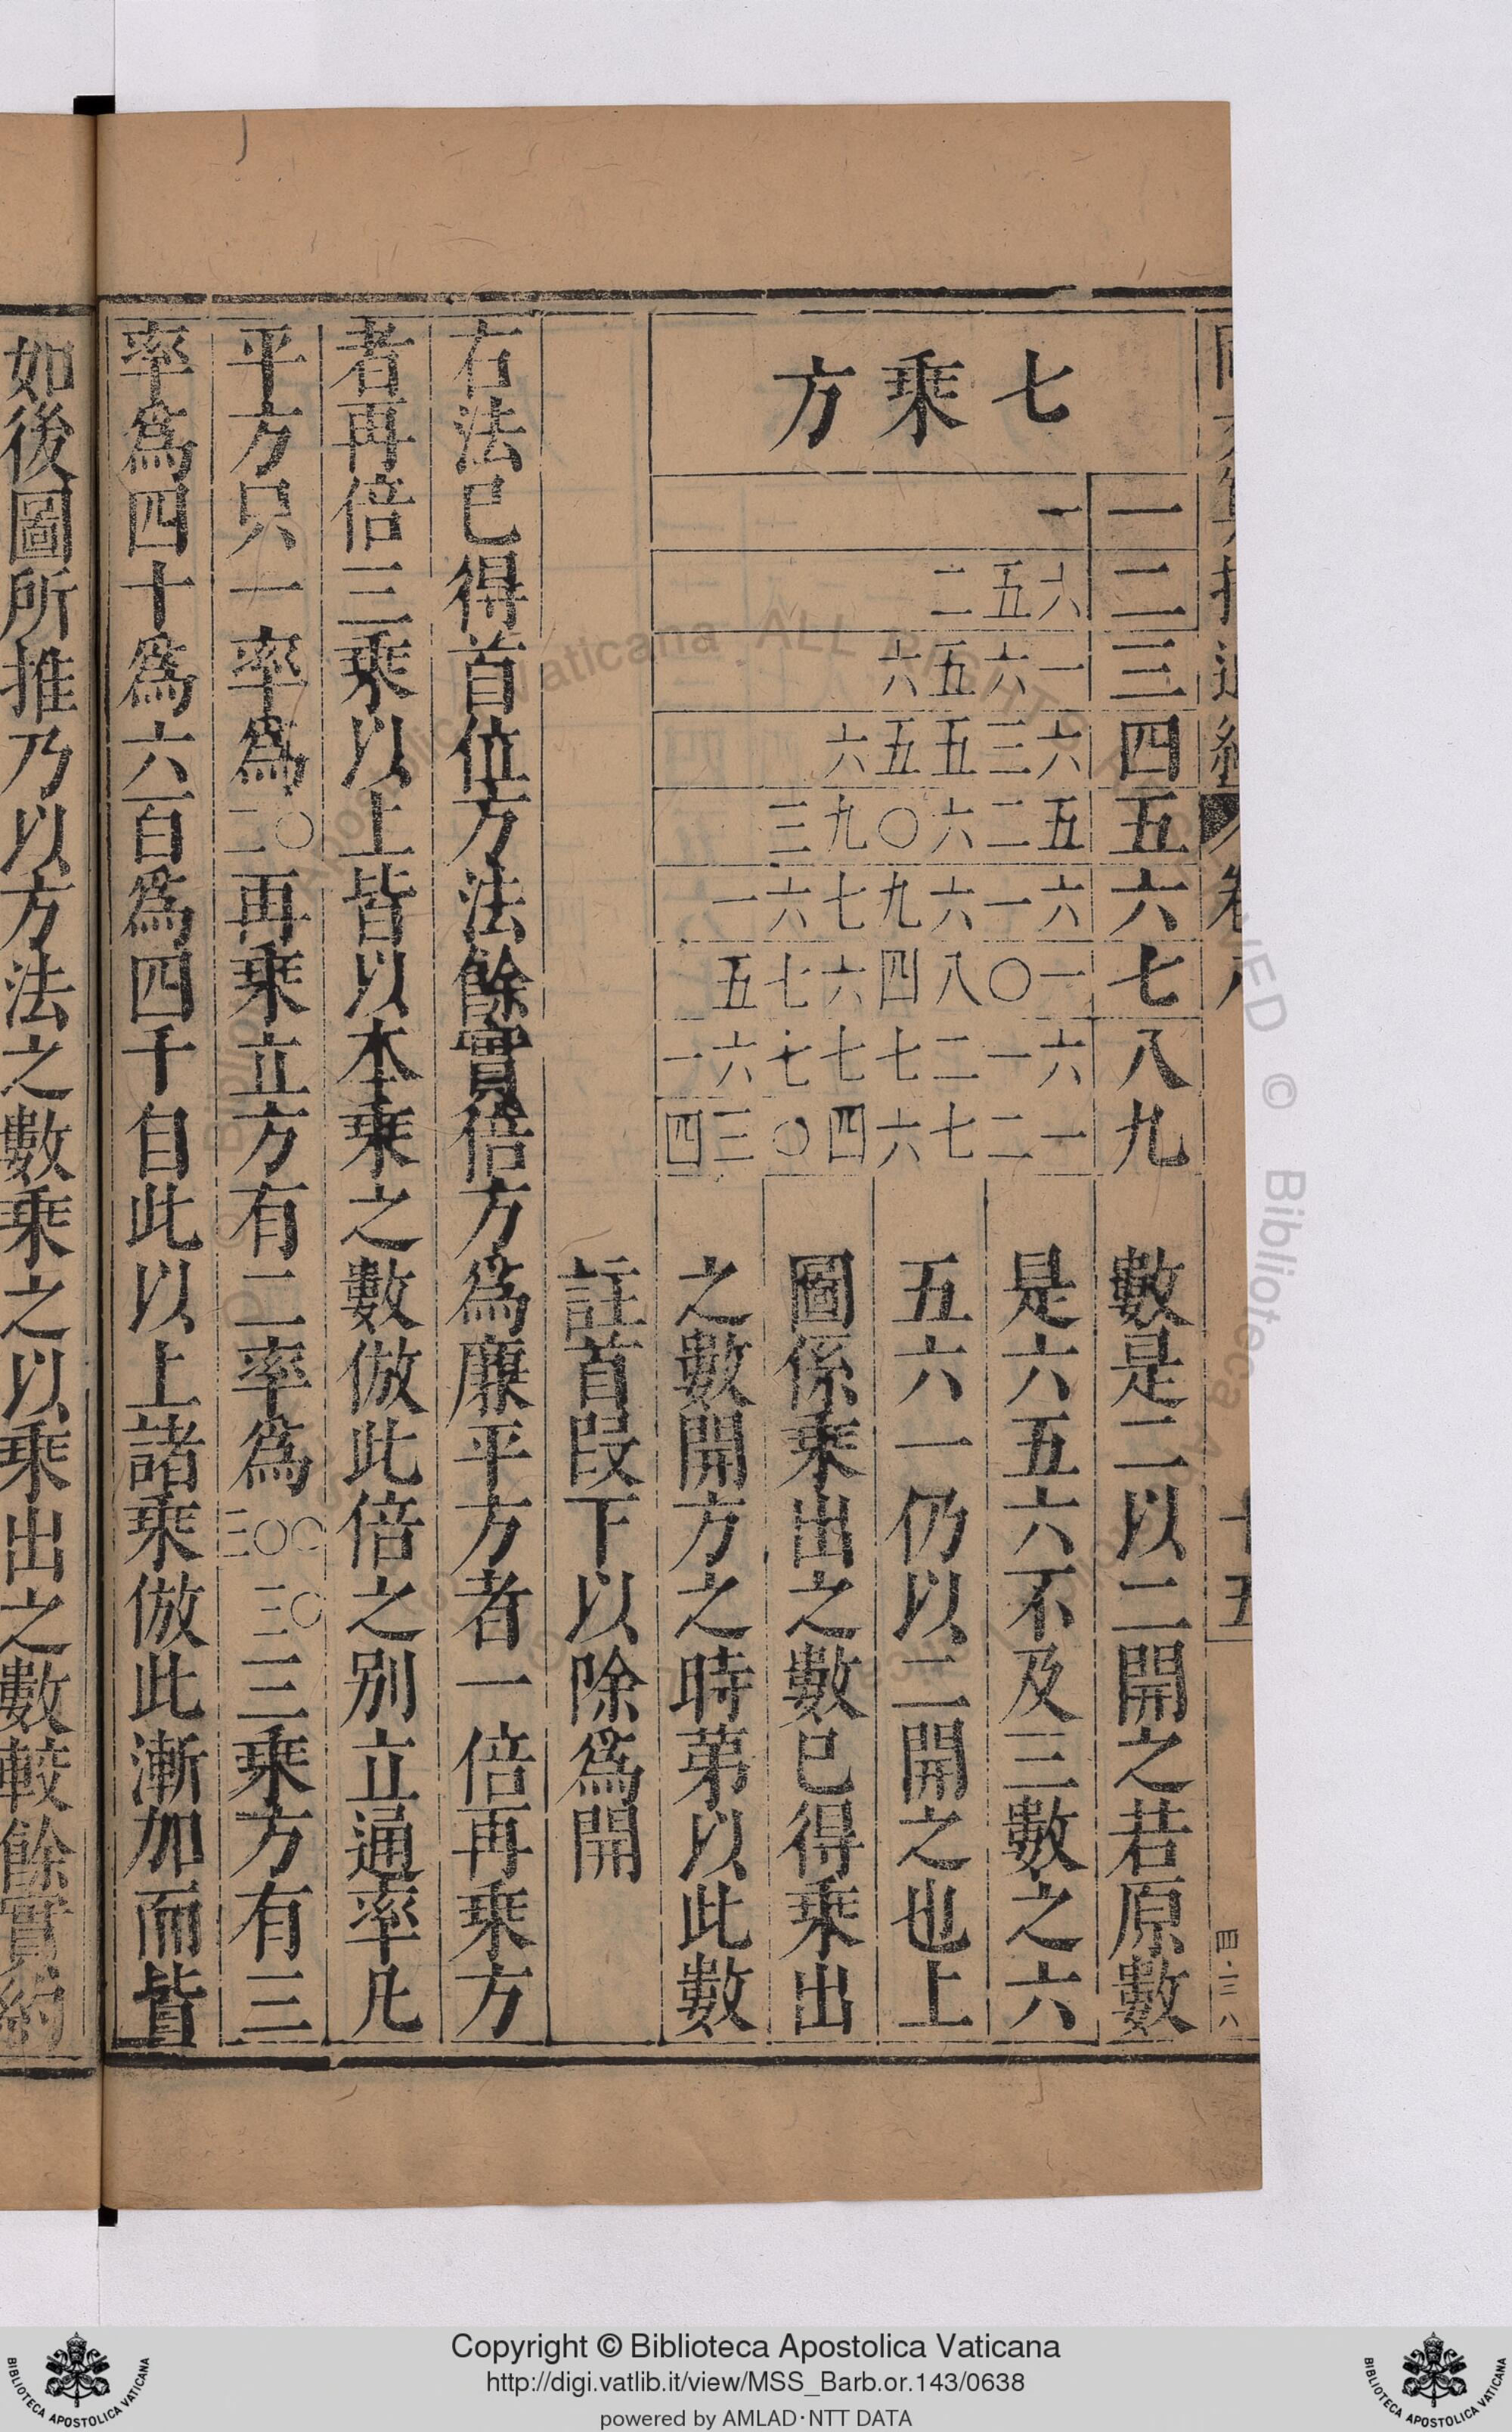 七乘方
一 一
二 二五六
三 六五六一
四 六五五三六
五 三九〇六二五
六 一六七九六一六
七 五七六四八〇一
八 一六七七七二一六
九 四三〇四六七二一
數是二以二開之若原數
是六五六不及三數之六
五六一仍以二開之也上
圖係乘出之數已得乘出
之數開方之時苐以此數
註首叚下以除爲開
右法已得首位方法餘實倍方爲廉平方者一倍再乘方
者再倍三乘以上皆以本乘之數倣此倍之别立通率凡
平方只一率爲二〇再乘立方有二率爲三〇〇三〇三乘方有三
率爲四十爲六百爲四千自此以上諸乘倣此漸加而皆
如後圖所推乃以方法之數乘之以乘出之數較餘實約
Copyright © Biblioteca Apostolica Vaticana
http://digi.vatlib.it/view/MSS_Barb.or.143/0638
powered by AMLAD·NTT DATA
BIBLIOTECA APOSTOLICA VATICANA
BIBLIOTECA APOSTOLICA VATICANA